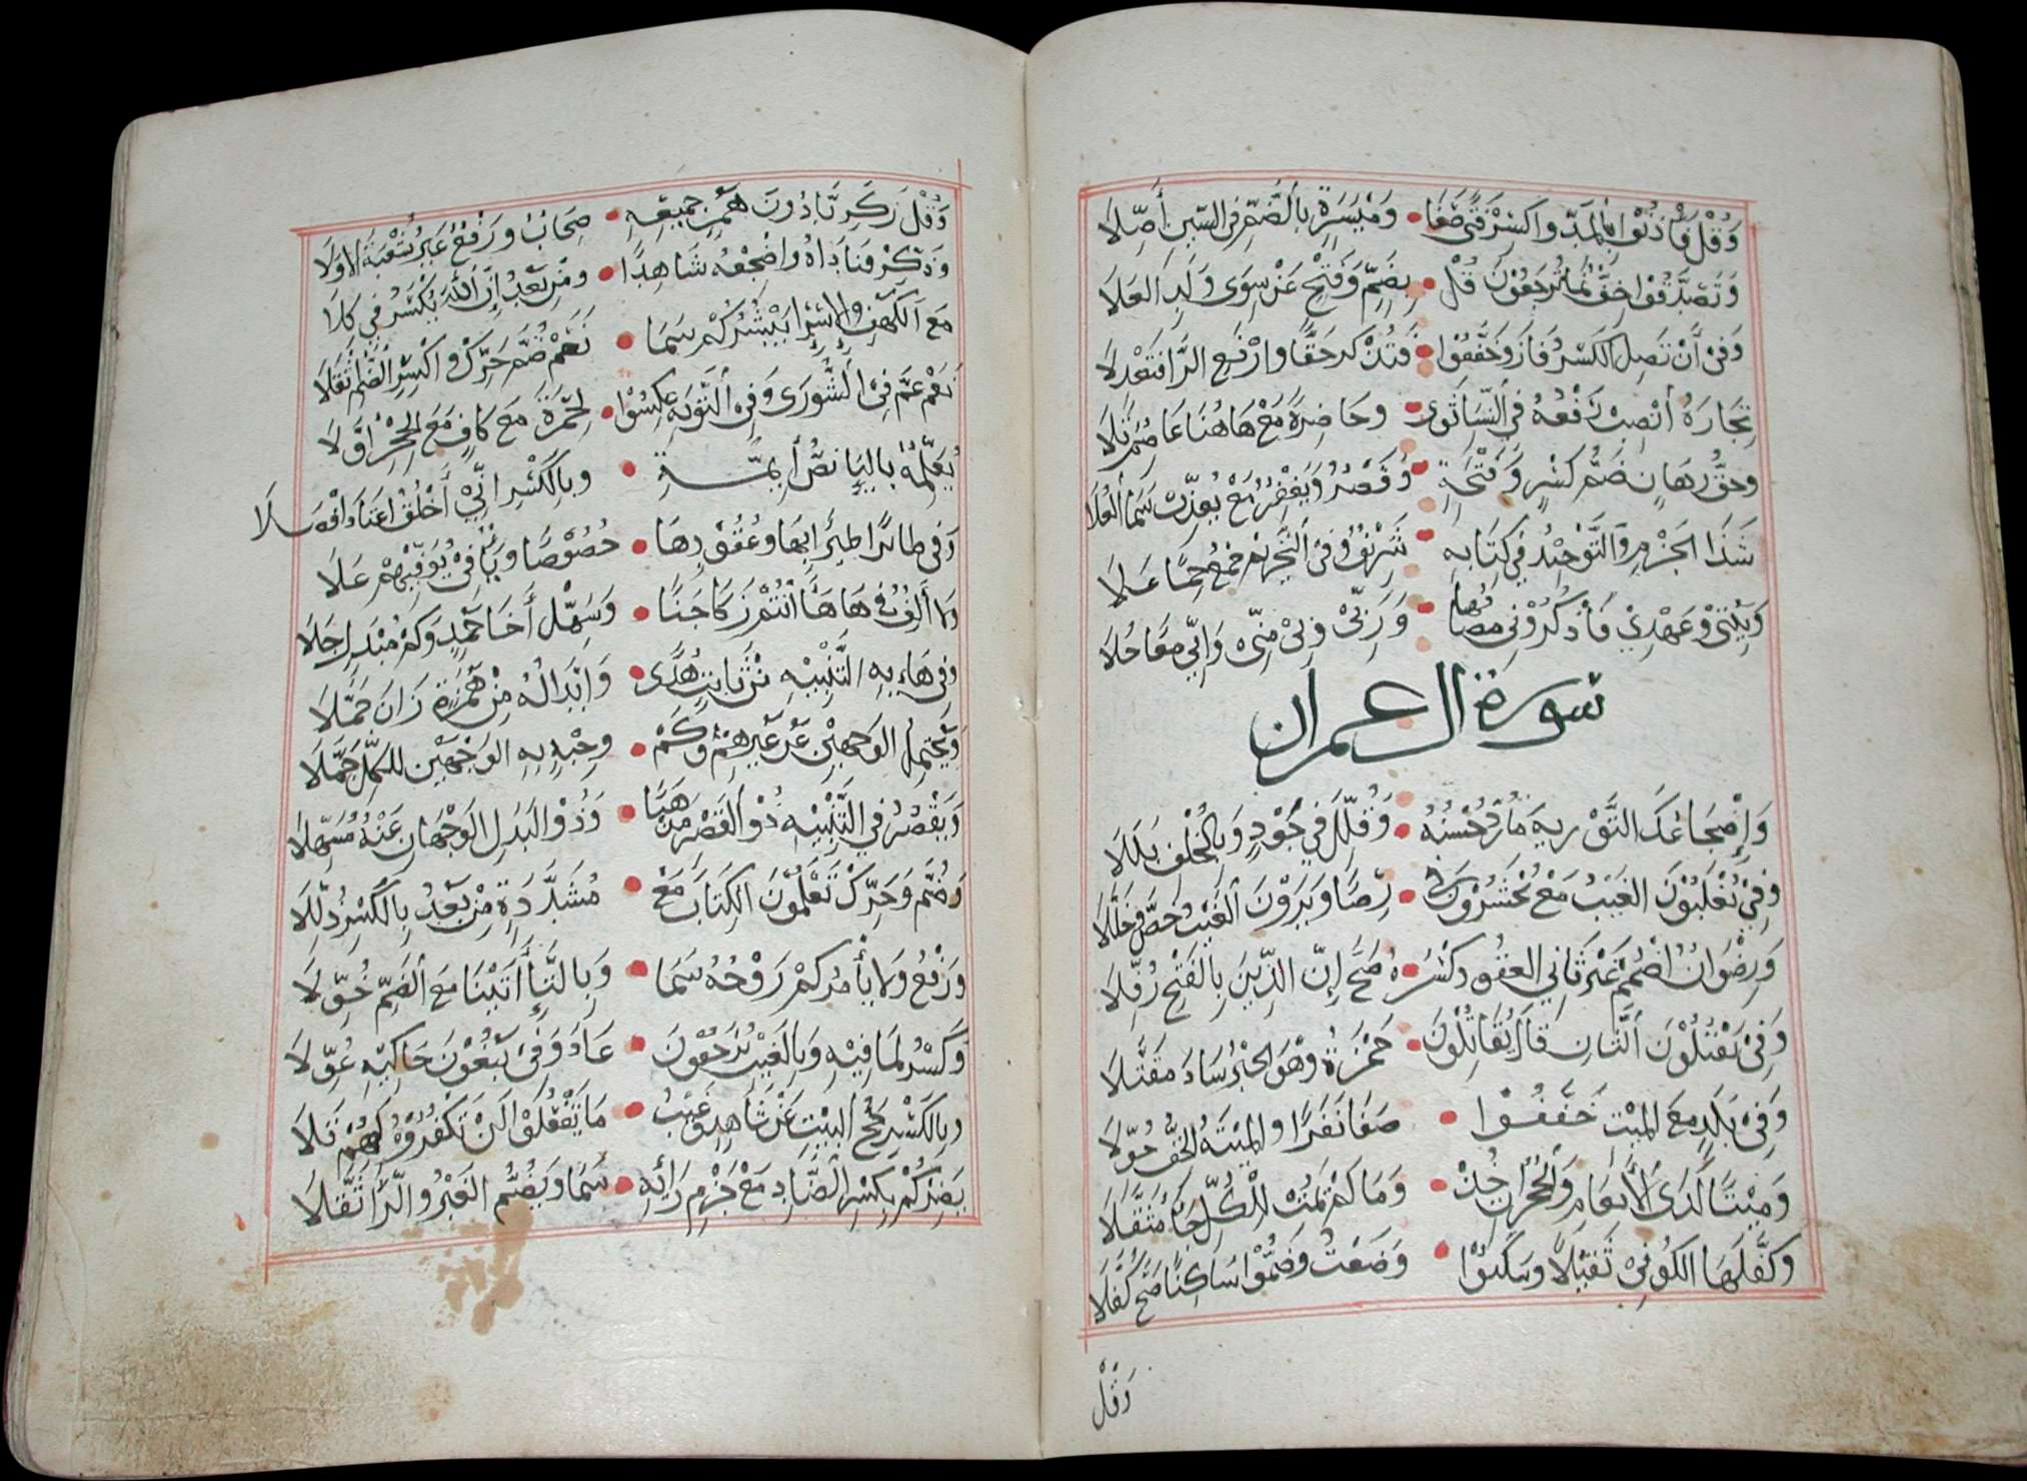 وَقُلْ فَأْذَنُوا بِالمَدِّ وَاكْسِرْ فَتًى صَفَا • وَمَيْسَرَةٍ بِالضَّمِّ فِي السِّينِ أُصِّلَا
وَتَصَّدَّقُوا خِفٌّ نَمَا تُرْجَعُونَ قُلْ • بِضَمٍّ وَفَتْحٍ عَنْ سِوَى وَلَدِ العَلَا
وَفِي أَنْ تَضِلَّ الكَسْرُ فَازَ وَخَفَّفُوا • فَتُذْكِرَ حَقًّا وَارْفَعِ الرَّا فَتَعْدِلَا
تِجَارَةُ انْصِبْ رَفْعَهُ فِي النِّسَا ثَوَى • وَحَاضِرَةٌ مَعْ هَاهُنَا عَاصِمٌ تَلَا
وَحَقُّ رِهَانٍ ضَمُّ كَسْرٍ وَفَتْحَةٍ • وَقَصْرٌ وَيَغْفِرْ مَعْ يُعَذِّبْ سَمَا العُلَا
شَذَا الجَزْمِ وَالتَّوْحِيدُ فِي كِتَابِهِ • شَرِيفٌ وَفِي التَّحْرِيمِ جَمْعُ حِمًا عَلَا
وَبَيْتِي وَعَهْدِي فَاذْكُرُونِي مُضَافُهَا • وَرَبِّي وَبِي مِنِّي وَإِنِّي مَعًا حُلَا
سورة ال عمران
وَإِضْجَاعُكَ التَّوْرِيةَ مَا رُدَّ حُسْنُهُ • وَقُلِّلَ فِي جَوْدٍ وَبِالخُلْفِ بَلَلَا
وَفِي تُغْلَبُونَ الغَيْبُ مَعْ تُحْشَرُونَ فِي • رِضًا وَيَرَوْنَ الغَيْبُ خَصَّ وَخُلِّلَا
وَرِضْوَانٌ اضْمُمْ غَيْرَ ثَانِي العُقُودِ كَسْرُ • هُ صَحَّ إِنَّ الدِّينَ بِالفَتْحِ رُفِّلَا
وَفِي يَقْتُلُونَ الثَّانِ قَالَ يُقَاتِلُونَ • حَمْزَةُ وَهْوَ الحَبْرُ سَادَ مُقَتَّلَا
وَفِي بَلَدٍ مَعَ المَيْتِ خَفَّفُوا • صَفَا نَفَرًا وَالمَيْتَةُ الخِفُّ خُوِّلَا
وَمَيْتًا لَدَى الأَنْعَامِ وَالحُجُرَاتِ خُذْ • وَمَا لَمْ يَمُتْ لِلْكُلِّ جَاءَ مُثَقَّلَا
وَكَفَّلَهَا الكُوفِي ثَقِيلًا وَسَكَّنُوا • وَضَعْتُ وَضَمُّوا سَاكِنًا صَحَّ كُفَّلَا
وَقُلْ
وَقُلْ زَكَرِيَّا دُونَ هَمْزِ جَمِيعِهِ • صِحَابٌ وَرَفْعٌ غَيْرُ شُعْبَةَ الاوَّلَا
وَذَكِّرْ فَنَادَاهُ وَاضْجِعْهُ شَاهِدًا • وَمِنْ بَعْدُ إِنَّ اللَّهَ يُكْسَرُ فِي كِلَا
مَعَ الكَهْفِ وَالإِسْرَا يَبْشُرُ كَمْ سَمَا • نَعَمْ ضُمَّ حَرِّكْ وَاكْسِرِ الضَّمَّ أَثْقَلَا
نَعَمْ عَمَّ فِي الشُّورَى وَفِي التَّوْبَةِ عكِسُوا • لِحَمْزَةَ مَعْ كَافٍ مَعَ الحِجْرِ أَوَّلَا
يُعَلِّمُهُ بِاليَاءِ نَصُّ أَئِمَّةٍ • وَبِالكَسْرِ إِنِّي أَخْلُقُ اعْتَادَ أَفْصَلَا
وَفِي طَائِرًا طَيْرًا بِهَا وَعُقُودِهَا • خُصُوصًا وَيَاءٌ فِي يُوَفِّيهُمْ عَلَا
وَلَا أَلِفٌ فِي هَا هَأَنْتُمْ زَكَا جَنًا • وَسَهِّلْ أَخَا حَمْدٍ وَكَمْ مُبْدِلٍ جَلَا
وَفِي هَاءِهِ التَّنْبِيهُ مِنْ ثَابِتٍ هُدًى • وَإِبْدَالُهُ مِنْ هَمْزَةٍ زَانَ جَمَّلَا
وَيَحْتَمِلُ الوَجْهَيْنِ عَنْ غَيْرِهِمْ وَكَمْ • وَجِيهٍ بِهِ الوَجْهَيْنِ لِلكُلِّ حَمَّلَا
وَيَقْصُرُ فِي التَّنْبِيهِ ذُو القَصْرِ مَذْهَبًا • وَذُو البَدَلِ الوَجْهَانِ عَنْهُ مُسَهِّلَا
وَضُمَّ وَحَرِّكْ تَعْلَمُونَ الكِتَابَ مَعْ • مُشَدَّدَةٍ مِنْ بَعْدُ بِالكَسْرِ ذُلِّلَا
وَرَفْعُ وَلَا يَأْمُرْكُمْ رَوْحُهُ سَمَا • وَبِالتَّاءِ أَتَيْنَا مَعَ الضَّمِّ خُوِّلَا
وَكَسْرُ لِمَا فِيهِ وَبِالغَيْبِ تُرْجَعُونَ • عَادَ وَفِي تَبْغُونَ حَاكِيهِ عُوِّلَا
وَبِالكَسْرِ حَجُّ البَيْتِ عَنْ شَاهِدٍ وَغَيْبُ • مَا يَفْعَلُوا لَنْ يُكْفَرُوهُ لَهُمْ تَلَا
يَضِرْكُمْ بِكَسْرِ الضَّادِ مَعْ جَزْمِ رَائِهِ • سَمَا وَيَضُمُّ الغَيْرُ وَالرَّاءَ ثَقَّلَا